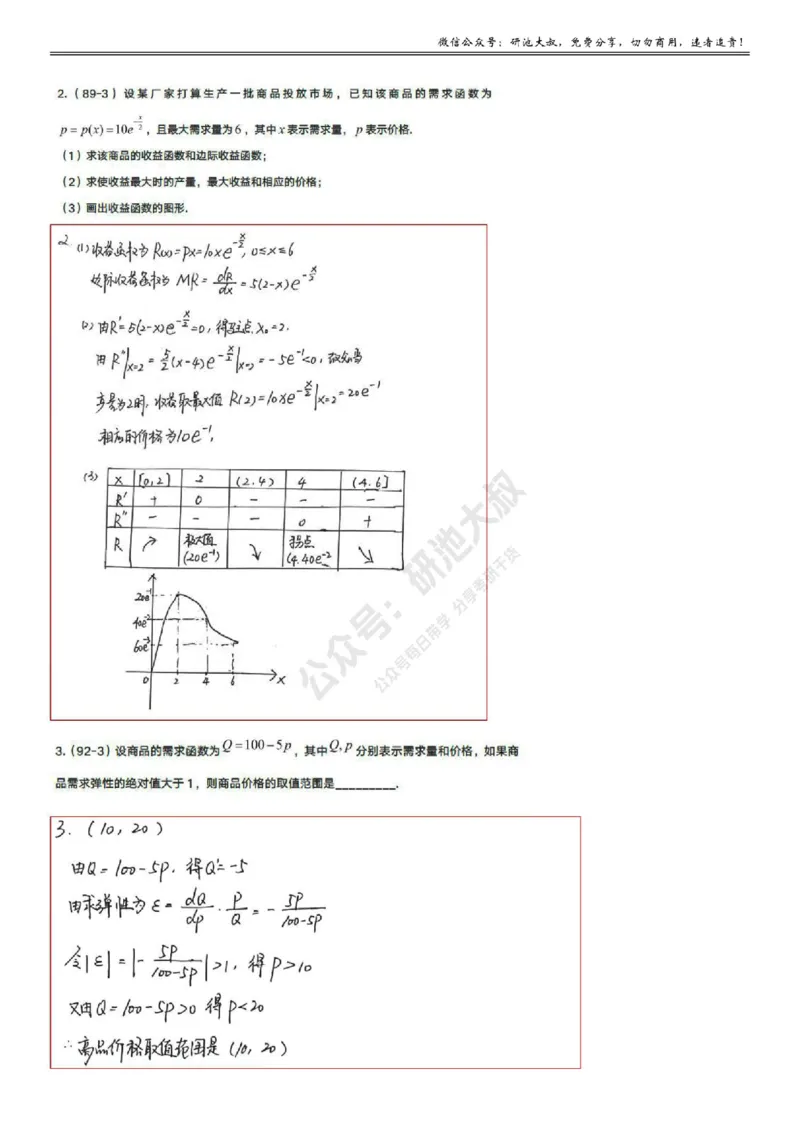 微信公众号：研池大叔，免费分享，切勿商用，违者追责！
2.（89-3）设某厂家打算生产一批商品投放市场，已知该商品的需求函数为
p = p(x) = 10e^{-x/2}，且最大需求量为6，其中x表示需求量，p表示价格.
（1）求该商品的收益函数和边际收益函数；
（2）求使收益最大时的产量，最大收益和相应的价格；
（3）画出收益函数的图形.
2. (1) 收益函数为 R(x)=px=10xe^{-x/2}, 0≤x≤6
边际收益函数为 MR = dR/dx = 5(2-x)e^{-x/2}
(2) 由R'=5(2-x)e^{-x/2}=0, 得驻点 x₀=2.
由R''|x=2 = 5/2(x-4)e^{-x/2}|x=2 = -5e^{-1}<0, 故知当
产量为2时, 收益取最大值 R(2)=10xe^{-x/2}|x=2 = 20e^{-1}
相应的价格为10e^{-1},
(3) x [0,2] 2 (2.4) 4 (4.6]
R' + 0 - - -
R'' - - - 0 +
R ↗ 极大值 (20e^{-1}) ↘ 拐点 (4.40e^{-2} ↘
20e^{-1}
40e^{-2}
60e^{-3}
0 2 4 6 x
公众号：研池大叔
公众号每日带学 分享考研干货
3.（92-3）设商品的需求函数为Q=100-5p，其中Q,p分别表示需求量和价格，如果商
品需求弹性的绝对值大于1，则商品价格的取值范围是_________.
3. (10, 20)
由Q=100-5P, 得Q'=-5
由求弹性为 ε = dQ/dp · P/Q = - 5P/100-5P
令|ε| = |- 5P/100-5P| >1, 得 P>10
又由Q=100-5P>0 得 P<20
∴商品价格取值范围是 (10, 20)